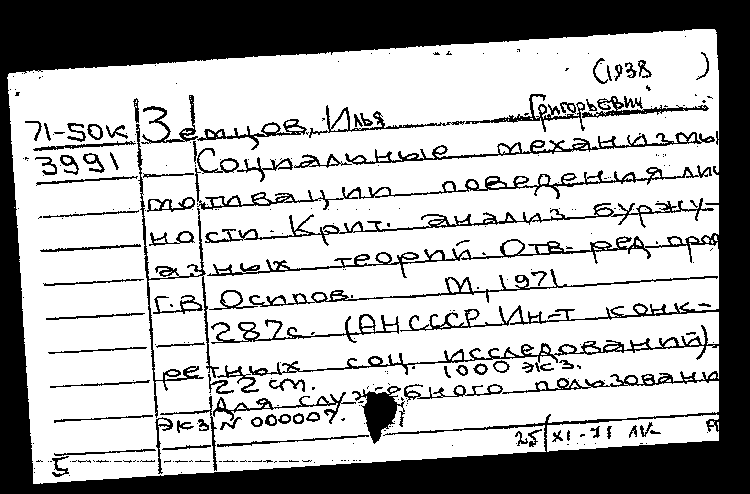 (1938 )
71-50к Земцов, Илья Григорьевич
3991 Социальные механизмы
мотивации поведения лич
ности. Крит. анализ буржу-
азных теорий. Отв. ред. проф
Г.В. Осипов. М., 1971.
287с. (АН СССР. Ин-т конк-
ретных соц. исследований).
22 cm. 1000 экз.
Для служебного пользовани
экз N 000007.
25/XI-71